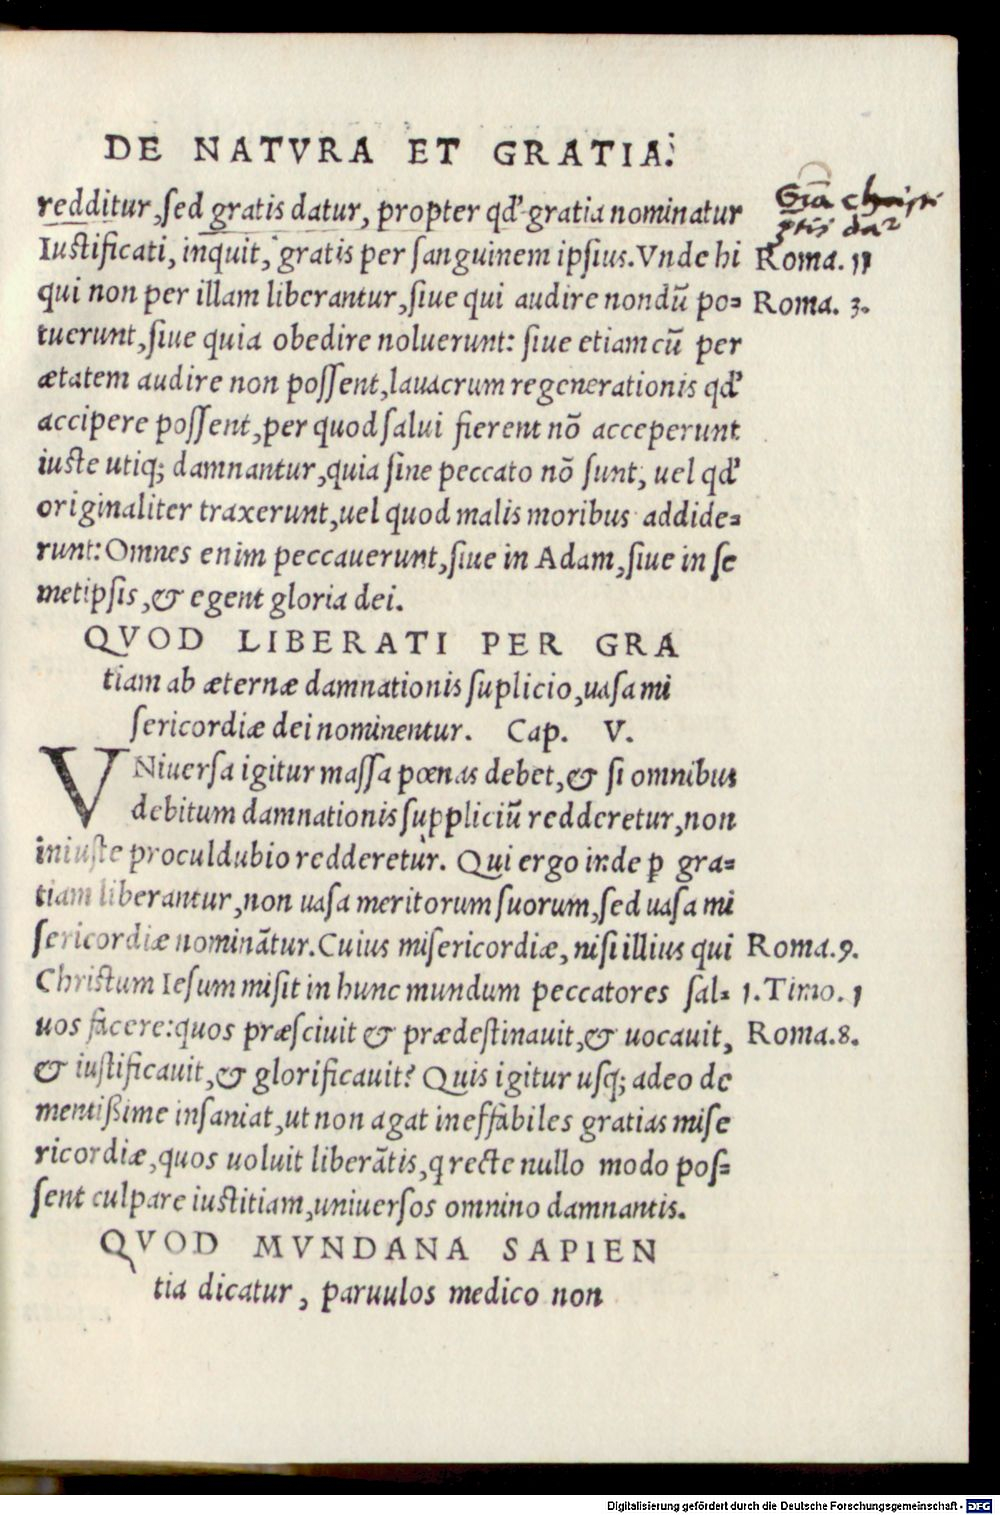 DE NATVRA ET GRATIA.
redditur, ſed gratis datur, propter qđ gratia nominatur
Gr̃a christi
gr̃tis dat
Iuſtificati, inquit, gratis per ſanguinem ipſius. Vnde hi
Roma. 11
qui non per illam liberantur, ſiue qui audire nondū po=
Roma. 3.
tuerunt, ſiue quia obedire noluerunt: ſiue etiam cū per
ætatem audire non poſſent, lauacrum regenerationis qđ
accipere poſſent, per quod ſalui fierent nō acceperunt
iuſte utiq; damnantur, quia ſine peccato nō ſunt, uel qđ
originaliter traxerunt, uel quod malis moribus addide=
runt: Omnes enim peccauerunt, ſiue in Adam, ſiue in ſe
metipſis, & egent gloria dei.
QVOD LIBERATI PER GRA
tiam ab æternæ damnationis ſuplicio, uaſa mi
ſericordiæ dei nominentur. Cap. V.
VNiuerſa igitur maſſa pœnas debet, & ſi omnibus
debitum damnationis ſuppliciū redderetur, non
iniuſte proculdubio redderetur. Qui ergo inde ꝑ gra=
tiam liberantur, non uaſa meritorum ſuorum, ſed uaſa mi
ſericordiæ nominãtur. Cuius miſericordiæ, niſi illius qui
Roma. 9.
Chriſtum Ieſum miſit in hunc mundum peccatores ſal=
1. Timo. 1
uos facere: quos præſciuit & prædeſtinauit, & uocauit,
Roma. 8.
& iuſtificauit, & glorificauit? Quis igitur uſq; adeo de
mentißime inſaniat, ut non agat ineffabiles gratias miſe
ricordiæ, quos uoluit liberãtis, q recte nullo modo poſ=
ſent culpare iuſtitiam, uniuerſos omnino damnantis.
QVOD MVNDANA SAPIEN
tia dicatur, paruulos medico non
Digitalisierung gefördert durch die Deutsche Forschungsgemeinschaft - DFG